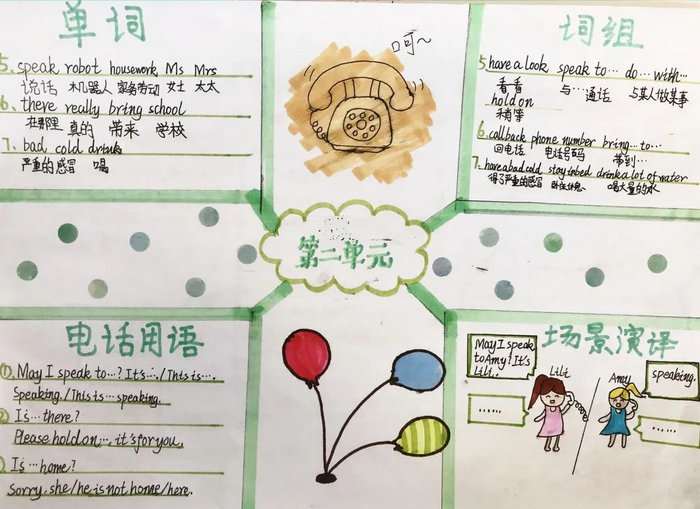 单词
5、speak robot housework Ms Mrs
说话 机器人 家务劳动 女士 太太
6、there really bring school
在那里 真的 带来 学校
7、bad cold drink
严重的感冒 喝
呵~
词组
5、have a look speak to… do… with…
看看 与…通话 与某人做某事
hold on
稍等
6、call back phone number bring…to…
回电话 电话号码 带到…
7、have a bad cold stay in bed drink a lot of water
得了严重的感冒 卧床休息 喝大量的水
第二单元
电话用语
① May I speak to…? It's…./This is….
Speaking./This is…speaking.
② Is…there?
Please hold on…, it's for you.
Is…home?
Sorry. she/he is not home/here.
场景演译
May I speak
to Amy? It's
Lili.
Lili
Amy
speaking.
……
……